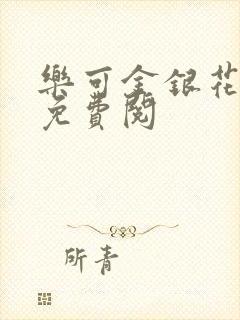 樂可金銀花
免費閱
所青